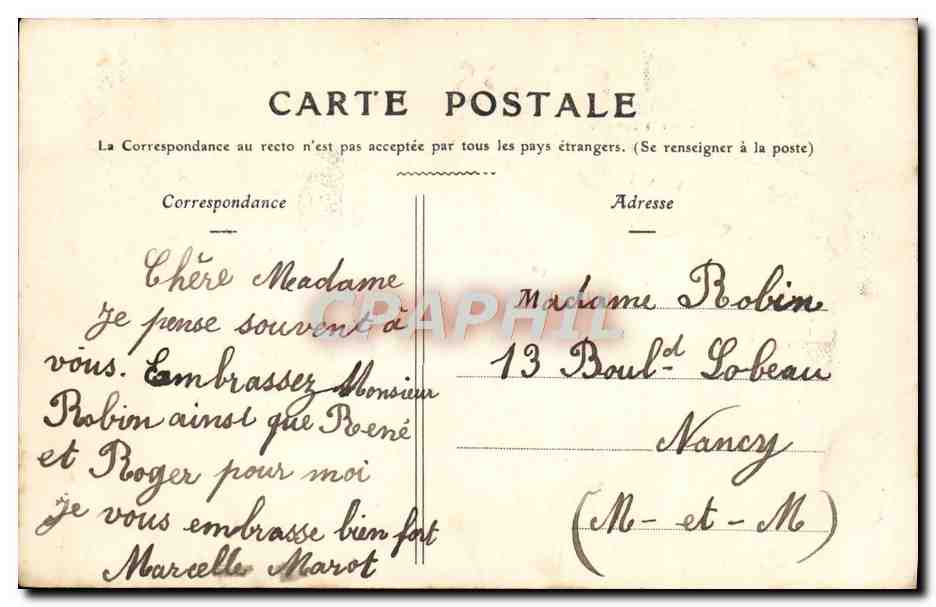 CARTE POSTALE
La Correspondance au recto n'est pas acceptée par tous les pays étrangers. (Se renseigner à la poste)
Correspondance
Chère Madame
je pense souvent à
vous. Embrassez Monsieur
Robin ainsi que René
et Roger pour moi
je vous embrasse bien fort
Marcelle Marot
Adresse
Madame Robin
13 Boul-d Lobeau
Nancy
(M-et-M)
CPAPHIL